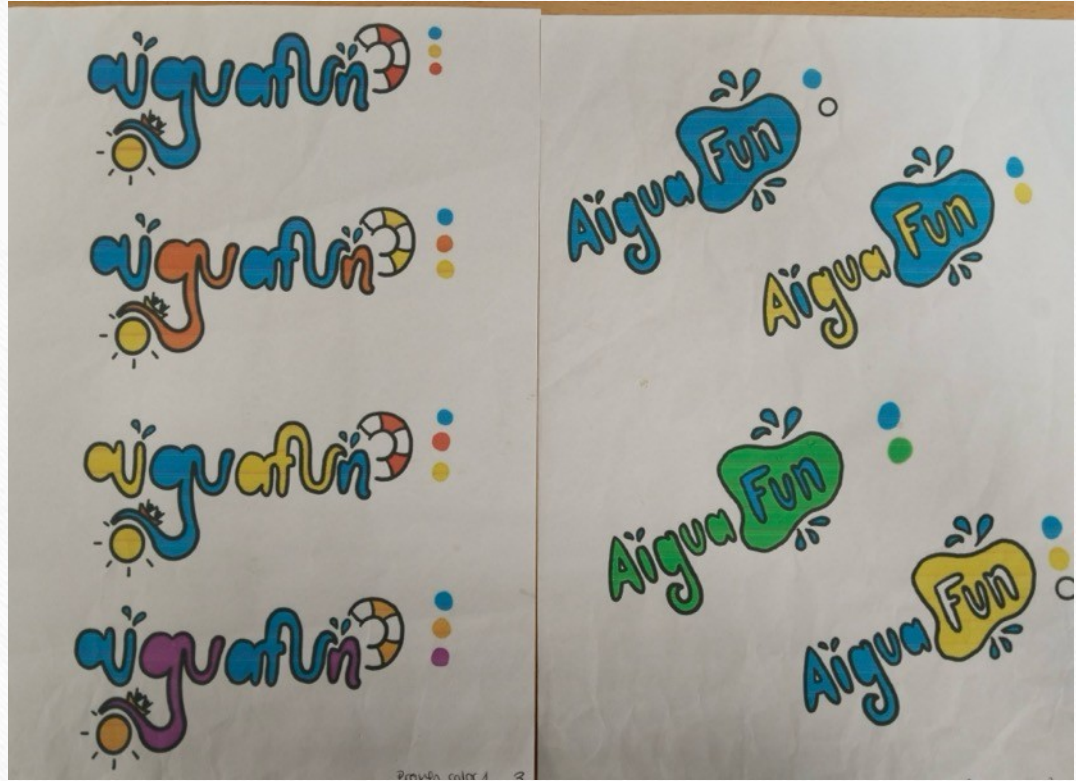 aiguafun
aiguafun
aiguafun
aiguafun
Prova color 1 3
Aïgua Fun
Aïgua Fun
Aïgua Fun
Aïgua Fun